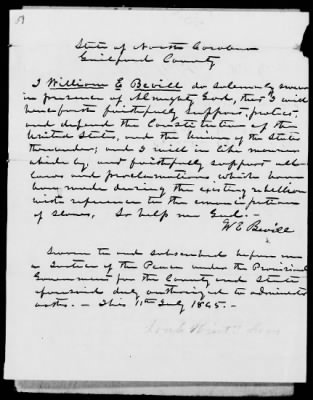 State of North Carolina
Guilford County
I William E Bevill do solemnly swear
in presence of Almighty God, that I will
henceforth faithfully support, protect
and defend the Constitution of the
United States, and the Union of the States
thereunder; and I will in like manner
abide by, and faithfully support all
laws and proclamations which have
been made during the existing rebellion
with reference to the emancipation
of slaves, So help me God. —
W E Bevill
Sworn to and subscribed before me
a Justice of the Peace under the Provisional
Government for the County and State
aforesaid duly authorized to administer
oaths. — This 11th July 1865 —